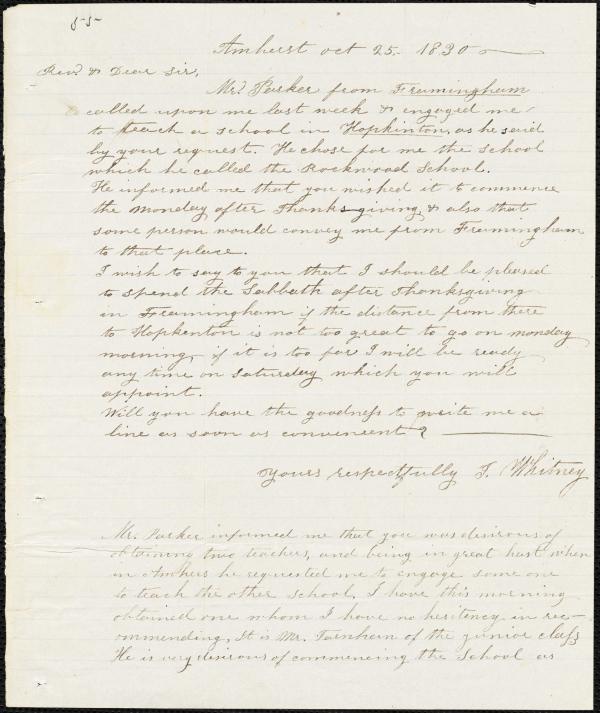 55
Amherst oct 25. 1830
Revd & Dear Sir,
Mr. Parker from Framingham
called upon me last week & engaged me
to teach a school in Hopkinton, as he said
by your request. He chose for me the school
which he called the Rockwood School.
He informed me that you wished it to commence
the Monday after Thanksgiving, & also that
some person would convey me from Framingham
to that place.
I wish to say to you that I should be pleased
to spend the Sabbath after Thanksgiving
in Framingham if the distance from there
to Hopkenton is not too great to go on monday
morning, if it is too far I will be ready
any time on Saturday which you will
appoint.
Will you have the goodness to write me a
line as soon as convenient?
Yours respectfully J. Whitney
Mr. Parker informed me that you was desirous of
obtaining two teachers, and being in great hast when
in Amhers he requested me to engage some one
to teach the other School. I have this morning
obtained one whom I have no hesitency in rec-
ommending. It is Mr. of the junior class
He is very desirous of commencing the School as